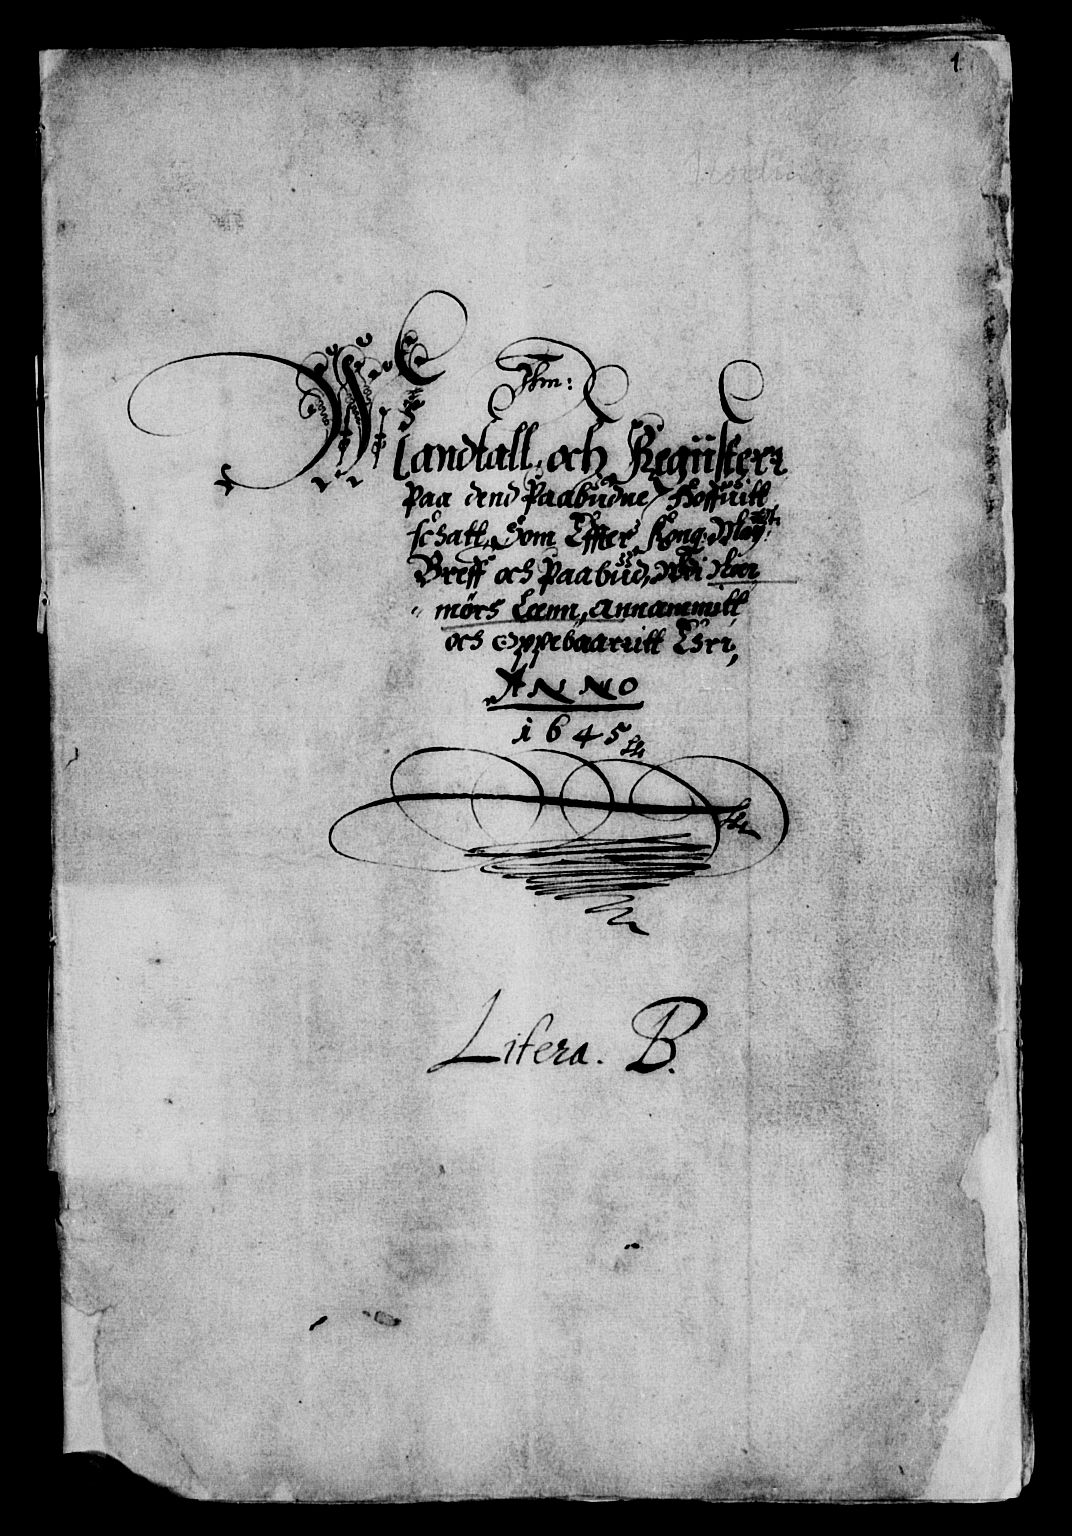 1
Jhm:
Mandtall och Regiister
Paa dend Paabudne Hoffuitt
schatt, Som Effter Kong: May:
Breff och Paabud, Wdi Nor
mörs Lænn, annammitt
och Oppebaaruitt Ehr,
ANNO
1645
Litera. B.